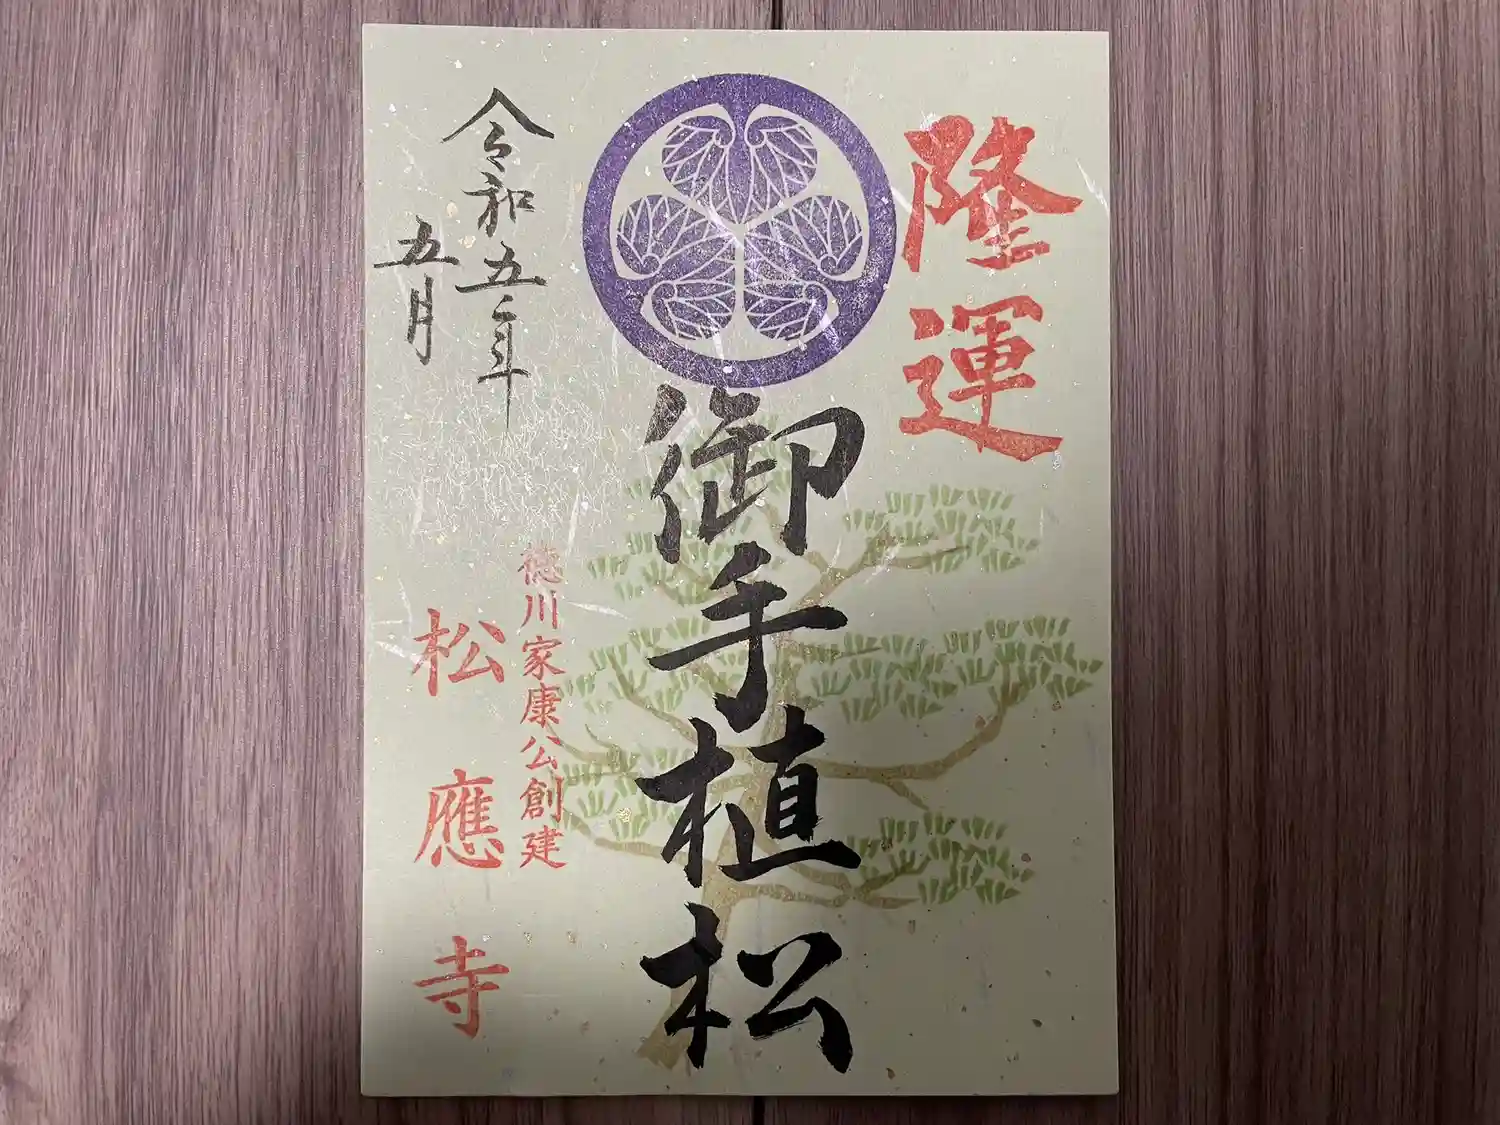 隆運
御手植松
令和五年
五月
徳川家康公創建
松應寺